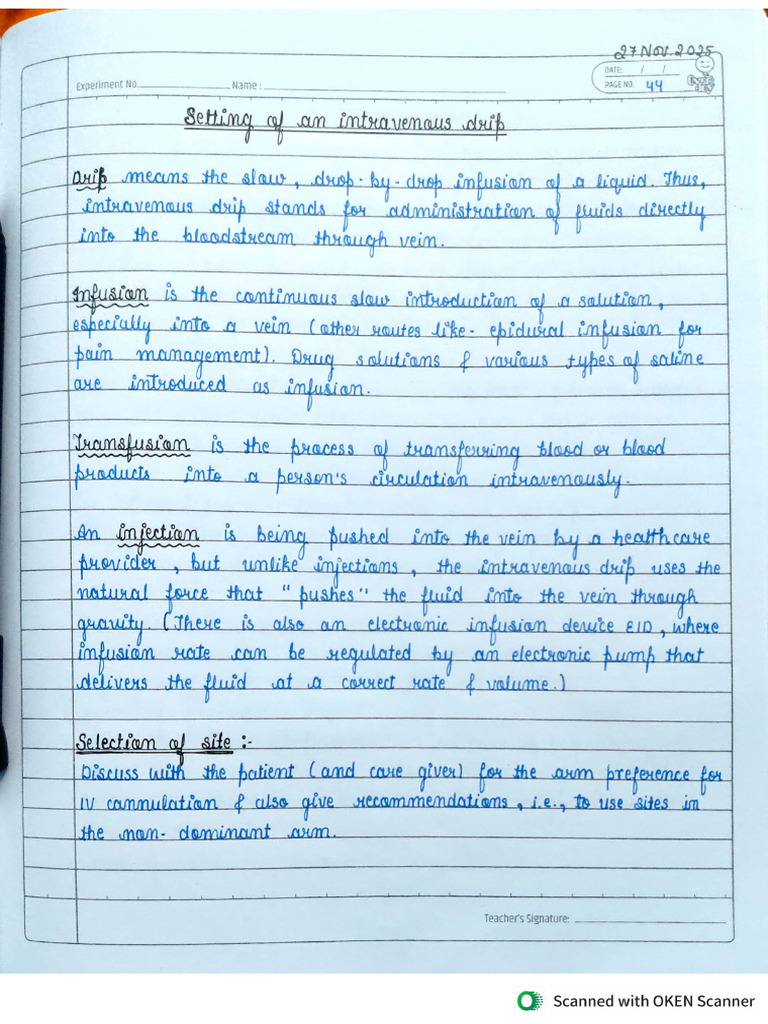 27 Nov. 2025
DATE: / /
Experiment No. Name :
PAGE NO. 44
Setting of an intravenous drip
Drip means the slow, drop-by-drop infusion of a liquid. Thus,
intravenous drip stands for administration of fluids directly
into the bloodstream through vein.
Infusion is the continuous slow introduction of a solution,
especially into a vein (other routes like- epidural infusion for
pain management). Drug solutions & various types of saline
are introduced as infusion.
Transfusion is the process of transferring blood or blood
products into a person's circulation intravenously.
An injection is being pushed into the vein by a healthcare
provider, but unlike injections, the intravenous drip uses the
natural force that "pushes" the fluid into the vein through
gravity. (There is also an electronic infusion device EID, where
infusion rate can be regulated by an electronic pump that
delivers the fluid at a correct rate & volume.)
Selection of site :-
Discuss with the patient (and care giver) for the arm preference for
IV cannulation & also give recommendations, i.e., to use sites in
the non-dominant arm.
Teacher's Signature:
Scanned with OKEN Scanner